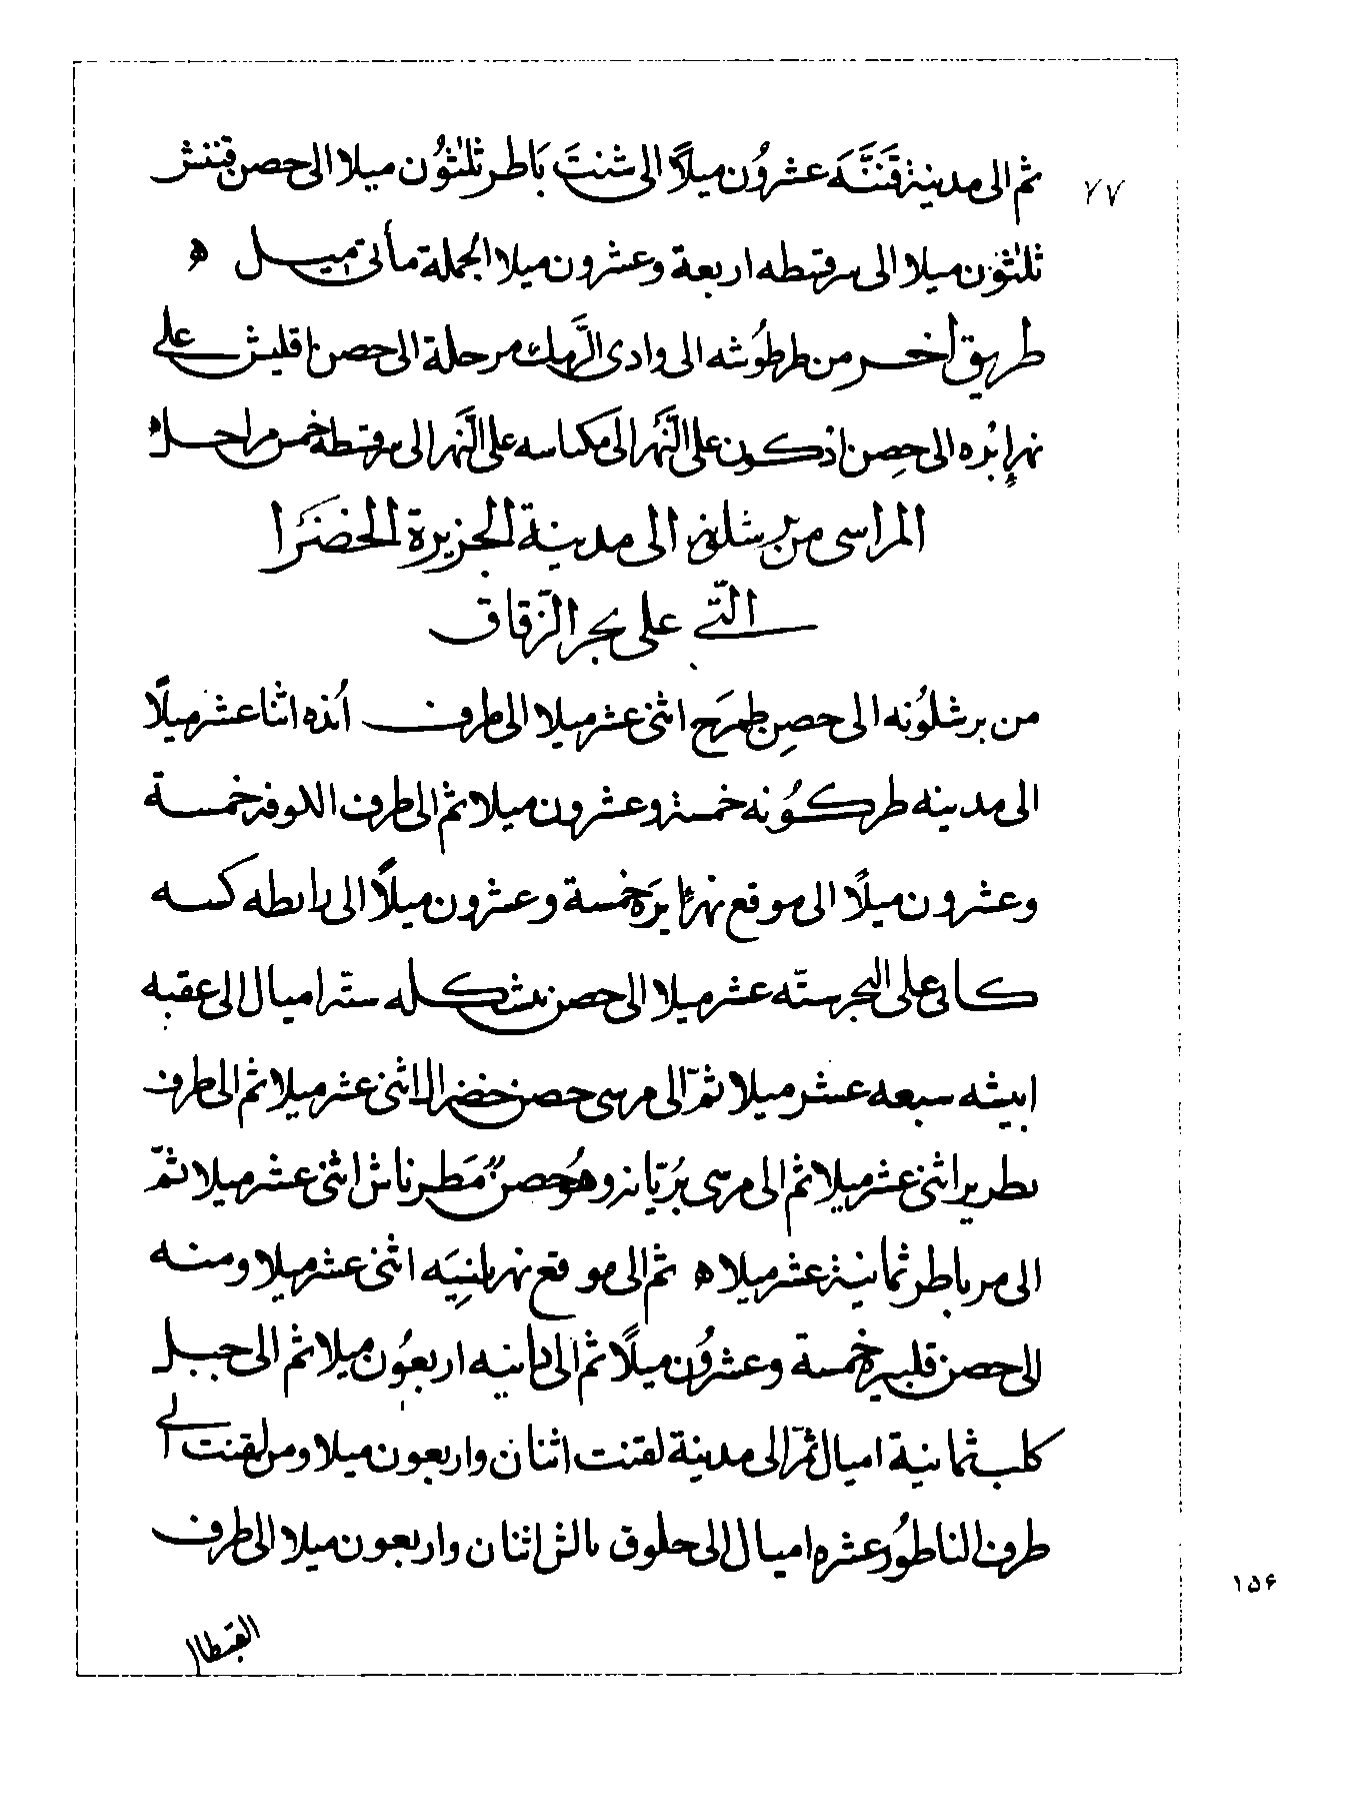 ٧٧
ثم الى مدينة قَنَنَّه عشروُن ميلاً الى شنتَ بَاطر ثلٰثوُن ميلا الى حصن قننش
ثلٰثون ميلا الى سرقسطه اربعة وعشرون ميلا الجملة مأتى ميل ه
طريق أخر من طرطوُشه الى وادى الرَّمك مرحلة الى حصن اقليش على
نهر إبُره الى حِصن اذكون على النَّهَر الى مكناسه على النَّهر الى سرقسطه خمس مراحل ه
المراسى من برشلونه الى مدينة الجزيرة الخضَرا
التّى على بحر الزّقاق
من برشلوُنه الى حصِن طمرَج اثنى عشر ميلا الى طرف اُنذه اثنا عشر ميلًا
الى مدينه طركوُنه خمسة وعشرون ميلا ثم الى طرف اللوفه خمسة
وعشرون ميلًا الى موقع نهر ابرَه خمسة وعشرون ميلًا الى رابطه كسه
كاى على البحر ستّه عشر ميلا الى حصن بشكله ستّه اميال الى عقبه
ابيشه سبعه عشر ميلا ثمّ الى مرسى حصن خضرال اثنى عشر ميلا ثم الى طرف
بطرير اثنى عشر ميلا ثم الى مرسى بُريَّانه وهُو حصنٌ مَطرناش اثنى عشر ميلا ثمّ
الى مرباطر ثمانية عشر ميلا ه ثم الى موقع نهر بلنسِيَه اثنى عشر ميلا ومنه
الى حصن قلبيره خمسة وعشروُن ميلًا ثم الى دانيه اربعوُن ميلا ثم الى جبل
كلب ثمانية اميال ثمّ الى مدينة لقنت اثنان واربعون ميلا ومن لقنت الى
طرف الناطوُر عشره اميال الى حلوق بالش اثنان واربعون ميلا الى طرف
القبطال
١۵۶